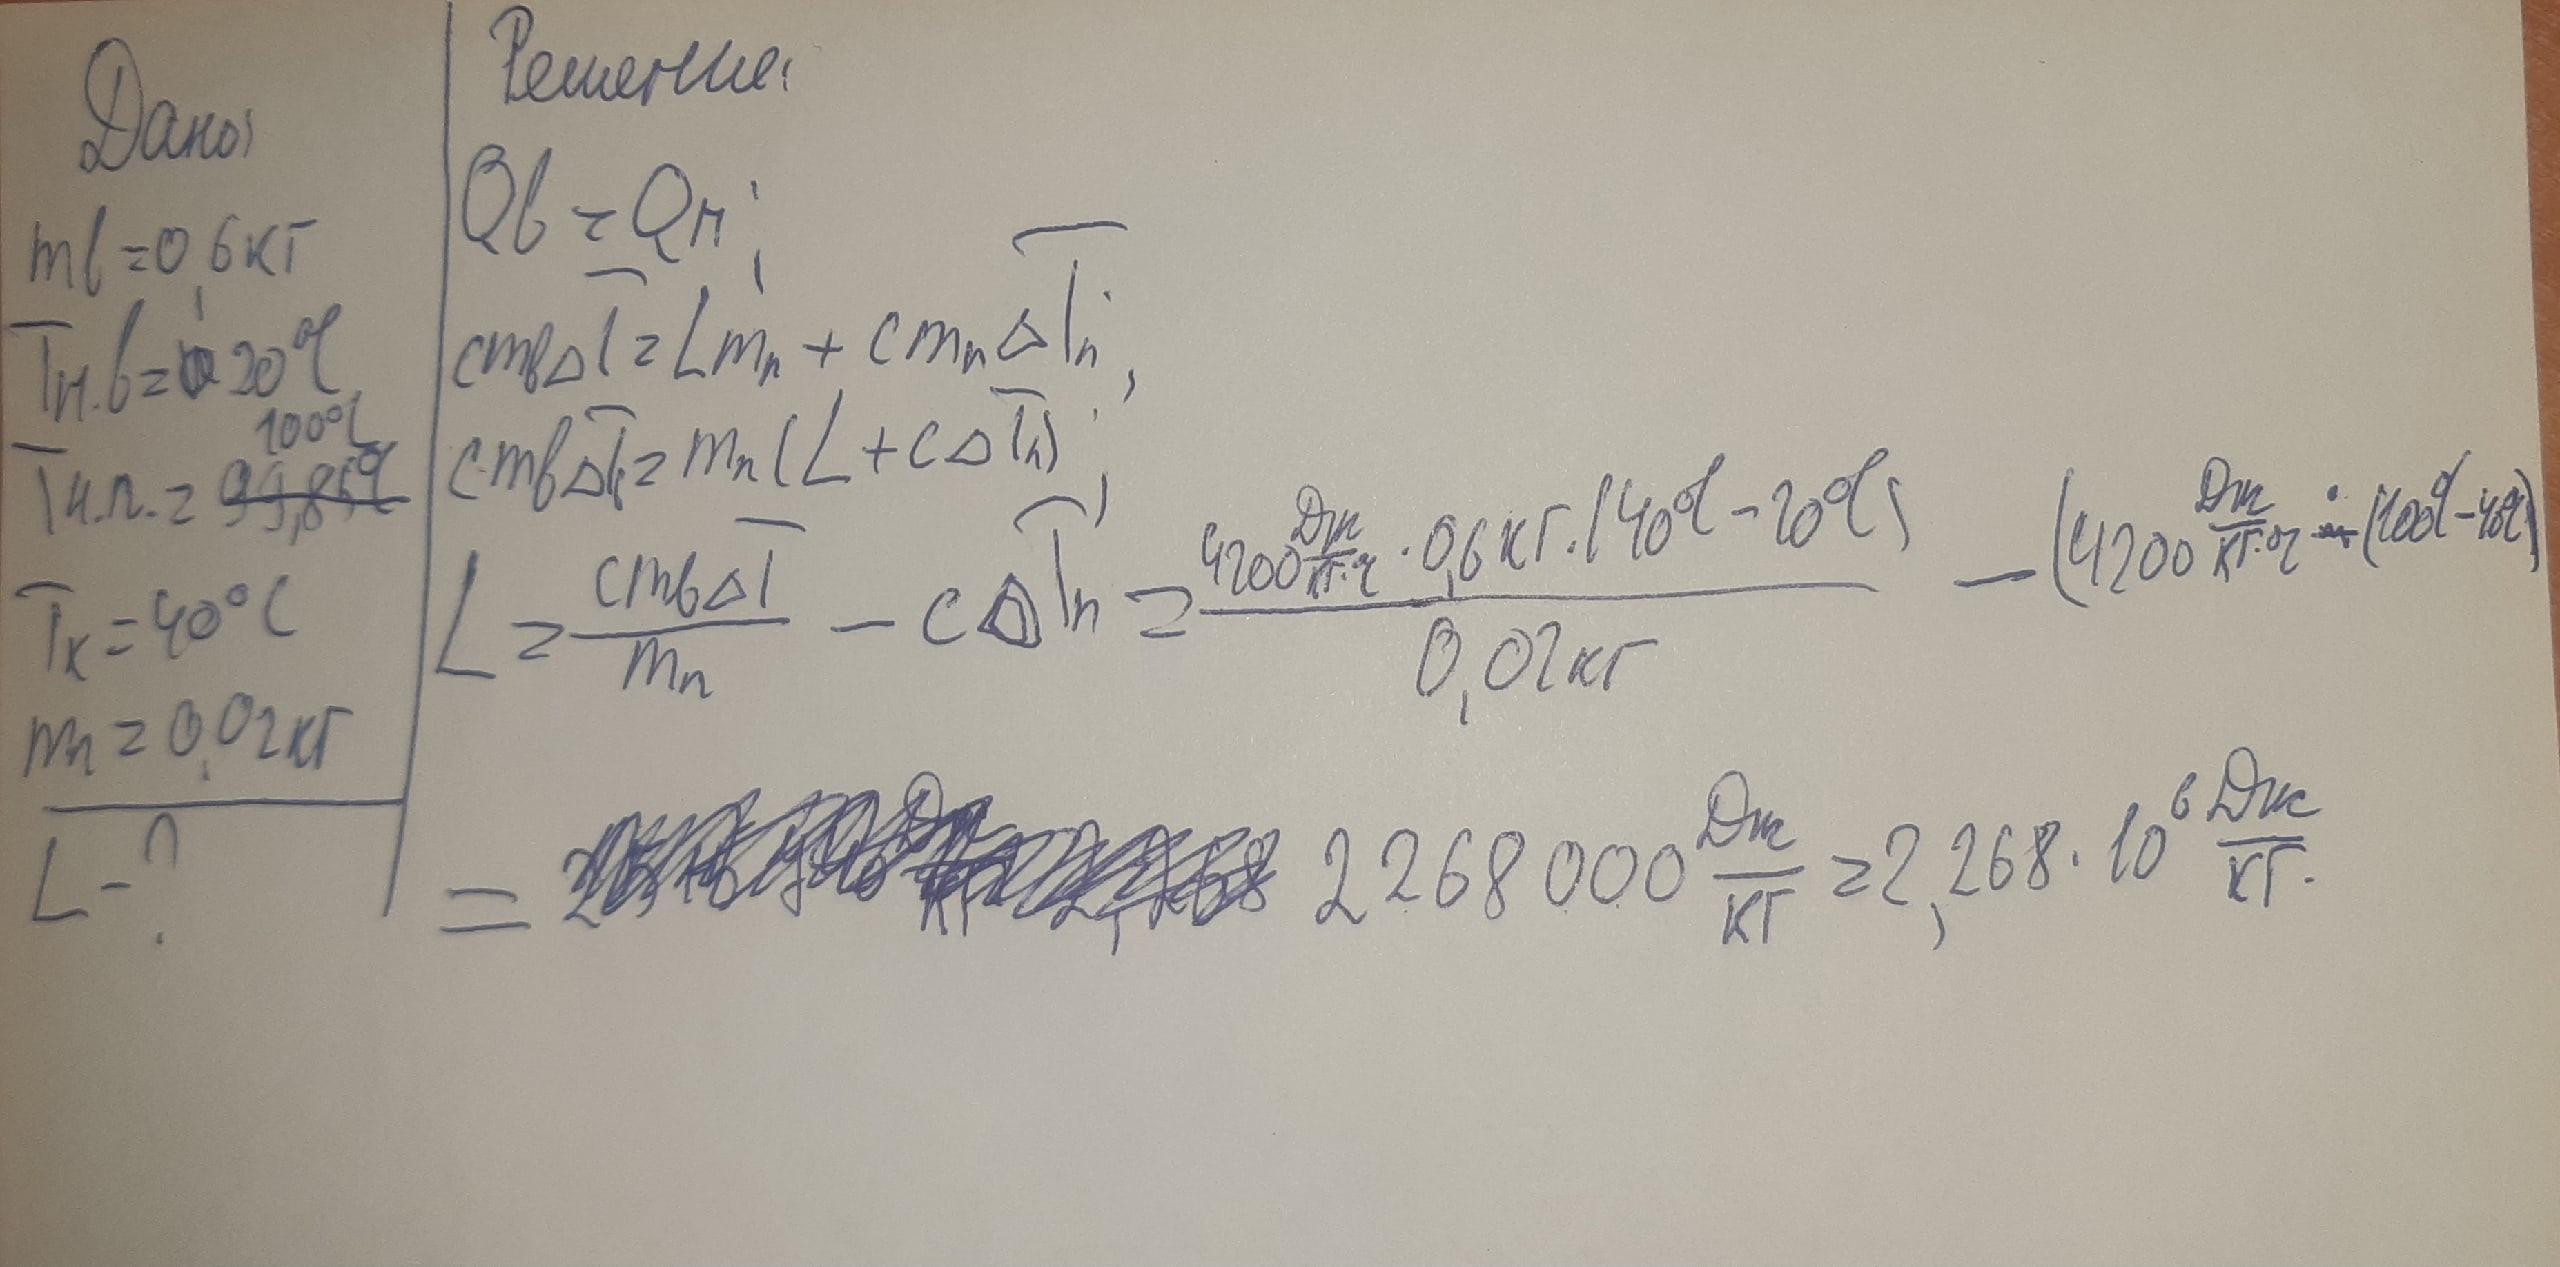 Дано:
mв = 0,6 кг
Tн.в = 20°C
100°C
Tн.п. = 99,85°C
Tк = 40°C
mп = 0,02 кг
L - ?
Решение:
Qв = Qп;
cmвΔT = Lmп + cmпΔTп;
cmвΔTв = mп(L + cΔTп);
L = cmвΔT / mп - cΔTп = 4200 Дж/кг·°C · 0,6 кг · (40°C - 20°C) / 0,02 кг - (4200 Дж/кг·°C · (100°C - 40°C))
= 2268000 Дж/кг = 2,268 · 10⁶ Дж/кг.